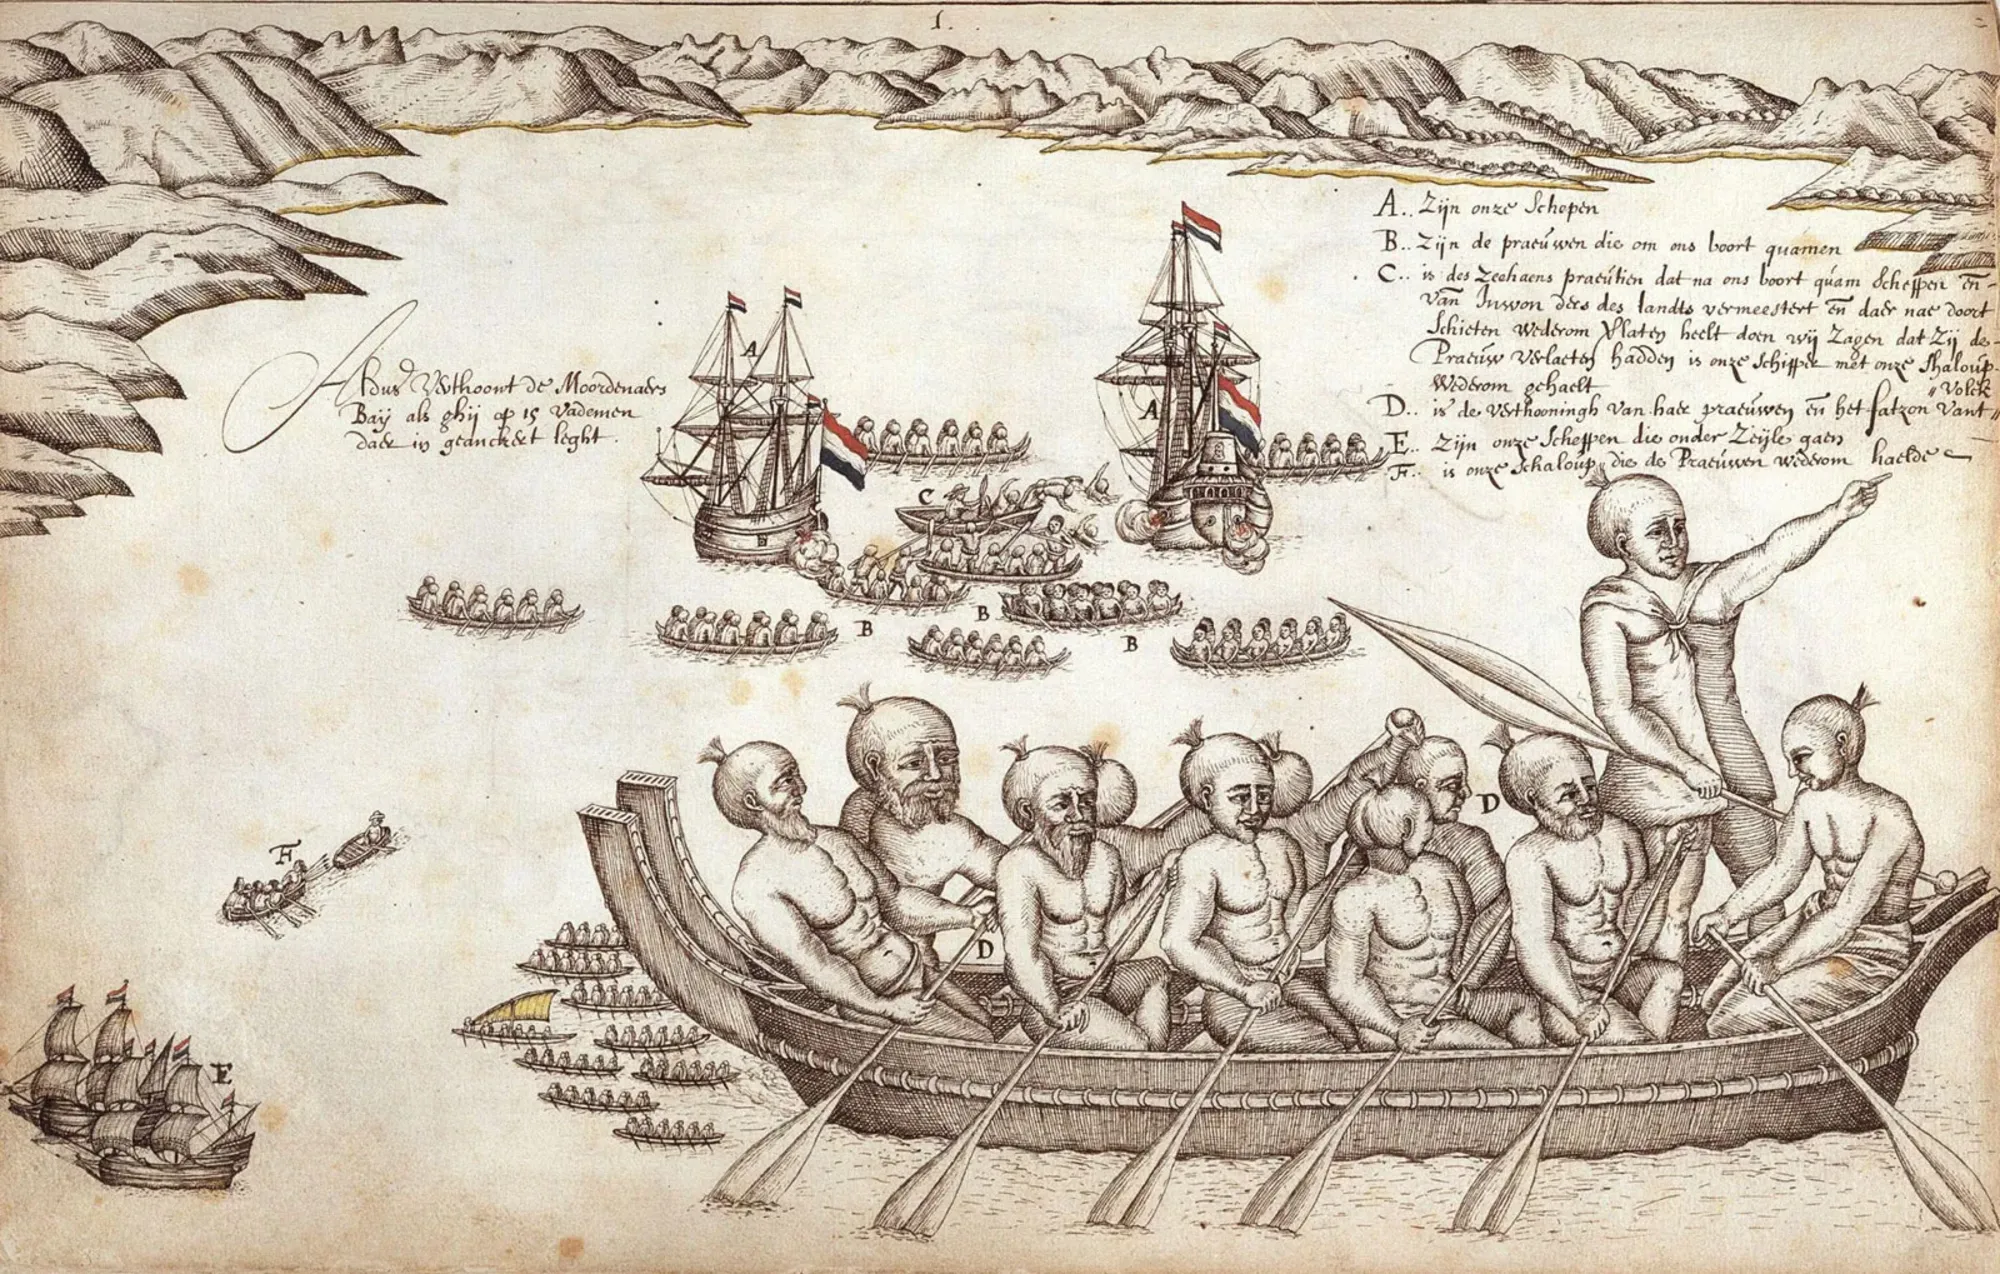 1.
A.. Zijn onze Schepen
B.. Zijn de praeúwen die om ons boort quamen
C.. is des Zeehaens praeútien dat na ons boort qúam Scheppen en-
van Inwon ders des landts vermeestert en daer nae doort
Schieten wederom Vlaten heelt doen wij Zagen dat Zij de-
Praeúw verlaeten hadden is onze Schipper met onze Shaloup-
wederom gehaelt "Volck
D.. is de verthooningh van haer praeúwen en het fatzon vant "
E.. Zijn onze Scheppen die onder Zeijle gaen
F.. is onze Schaloúp, die de Praeúwen wederom haelde
Aldus Verthoont de Moordenaers
Baij als ghij op 15 Vademen
daer in geanckert leght.
A
A
C
B
B
B
D
D
F
E